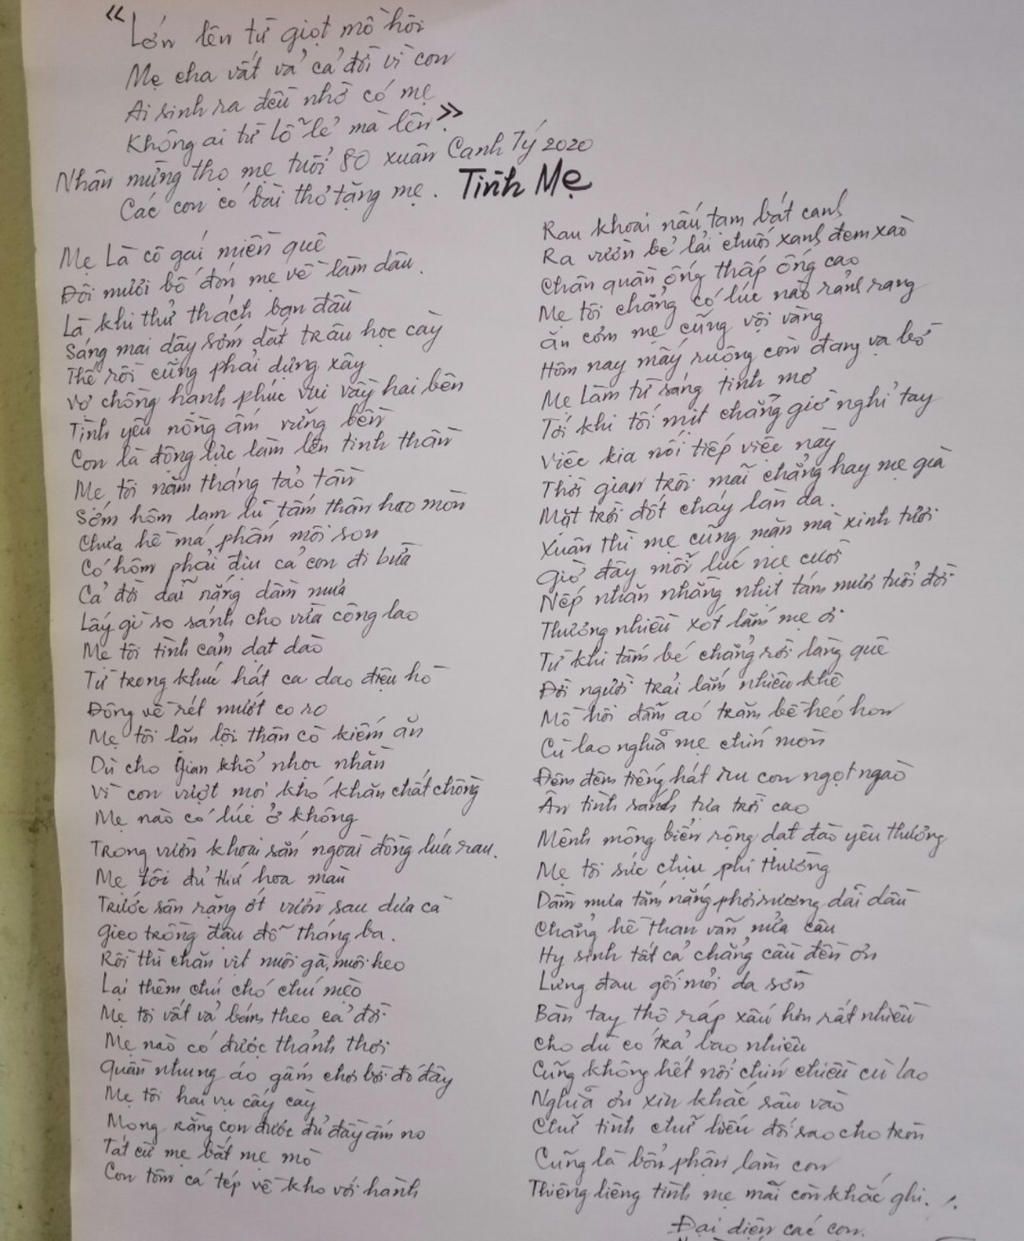 “Lớn lên từ giọt mồ hôi
Mẹ cha vất vả cả đời vì con
Ai sinh ra đều nhờ có mẹ
Không ai từ lỗ lẻ mà lên.”
Nhân mừng thọ mẹ tuổi 80 xuân Canh Tý 2020
Các con có bài thơ tặng mẹ.
Tình Mẹ
Mẹ Là cô gái miền quê
Đôi mươi bố đón mẹ về làm dâu.
Là khi thử thách ban đầu
Sáng mai dậy sớm dắt trâu học cày
Thế rồi cũng phải dựng xây
Vợ chồng hạnh phúc vui vầy hai bên
Tình yêu nồng ấm vững bền
Con là động lực làm lên tinh thần
Mẹ tôi năm tháng tảo tần
Sớm hôm lam lũ tấm thân hao mòn
Chưa hề má phấn môi son
Có hôm phải địu cả con đi bừa
Cả đời dãi nắng dầm mưa
Lấy gì so sánh cho vừa công lao
Mẹ tôi tình cảm dạt dào
Từ trong khúc hát ca dao điệu hò
Đông về rét mướt co ro
Mẹ tôi lăn lội thân cò kiếm ăn
Dù cho gian khổ nhọc nhằn
Vì con vượt mọi khó khăn chất chồng
Mẹ nào có lúc ở không
Trong vườn khoai sắn ngoài đồng lúa rau.
Mẹ tôi đủ thứ hoa màu
Trước sân rặng ớt vườn sau dưa cà
Gieo trồng đậu đỗ tháng ba.
Rồi thì chăn vịt nuôi gà, nuôi heo
Lại thêm chú chó chú mèo
Mẹ tôi vất vả bám theo cả đời
Mẹ nào có được thảnh thơi
Quần nhung áo gấm chơi bời đó đây
Mẹ tôi hai vụ cấy cày
Mong rằng con được đủ đầy ấm no
Tát cừ mẹ bắt mẹ mò
Con tôm cá tép về kho với hành
Rau khoai nấu tạm bát canh
Ra vườn bẻ lải chuối xanh đem xào
Chân quần ống thấp ống cao
Mẹ tôi chẳng có lúc nào rảnh rang
Ăn cơm mẹ cũng vội vàng
Hôm nay mấy ruộng còn đang vạ bờ
Mẹ Làm từ sáng tinh mơ
Tới khi tối mịt chẳng giờ nghỉ tay
Việc kia nối tiếp việc này
Thời gian trôi mãi chẳng hay mẹ già
Mặt trời đốt cháy làn da.
Xuân thì mẹ cũng mặn mà xinh tươi
Giờ đây mỗi lúc mẹ cười
Nếp nhăn nhằng nhịt tám mươi tuổi đời
Thương nhiều xót lắm mẹ ơi
Từ khi tấm bé chẳng rời làng quê
Đời người trải lắm nhiêu khê
Mồ hôi đẫm áo trăm bề héo hon
Cù lao nghĩa mẹ chín mòn
Đêm đêm tiếng hát ru con ngọt ngào
Ân tình sánh tựa trời cao
Mênh mông biển rộng dạt dào yêu thương
Mẹ tôi sức chịu phi thường
Dầm mưa tắm nắng phơi sương dãi dầu
Chẳng hề than vãn nửa câu
Hy sinh tất cả chẳng cầu đền ơn
Lưng đau gối mỏi da sờn
Bàn tay thô ráp xấu hơn rất nhiều
Cho dù có trả bao nhiêu
Cũng không hết nổi chín chiều cù lao
Nghĩa ơn xin khắc sâu vào
Chữ tình chữ hiếu đối sao cho tròn
Cũng là bổn phận làm con
Thiêng liêng tình mẹ mãi còn khắc ghi.
Đại diện các con.